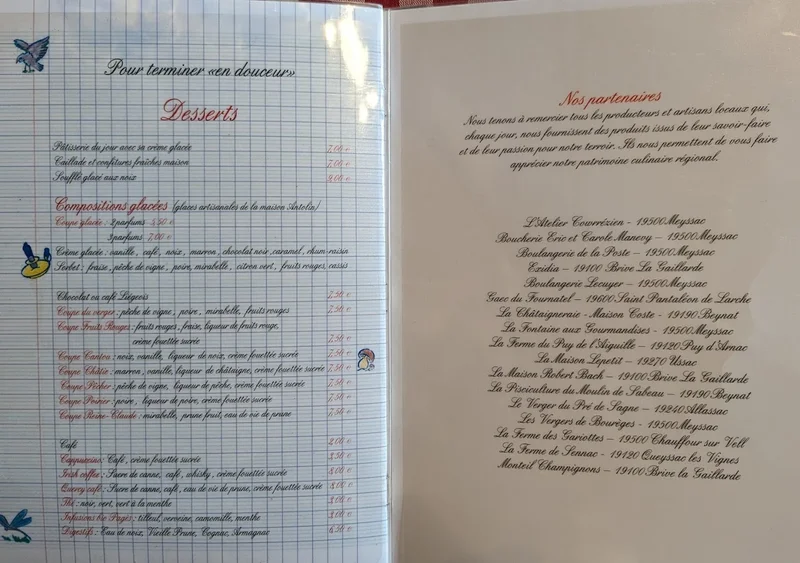 Pour terminer «en douceur»
Desserts
Pâtisserie du jour avec sa crème glacée 7,00 €
Caillade et confitures fraîches maison 7,00 €
Soufflé glacé aux noix 9,00 €
Compositions glacées (glaces artisanales de la maison Antolin)
Coupe glacée : 2 parfums 5,50 €
3 parfums 7,00 €
Crème glacée : vanille, café, noix, marron, chocolat noir, caramel, rhum-raisin
Sorbet : fraise, pêche de vigne, poire, mirabelle, citron vert, fruits rouges, cassis
Chocolat ou café Liégeois 7,50 €
Coupe du verger : pêche de vigne, poire, mirabelle, fruits rouges 7,50 €
Coupe Fruits Rouges : fruits rouges, fraise, liqueur de fruits rouge,
crème fouettée sucrée 7,50 €
Coupe Cantou : noix, vanille, liqueur de noix, crème fouettée sucrée 7,50 €
Coupe Châtix : marron, vanille, liqueur de châtaigne, crème fouettée sucrée 7,50 €
Coupe Pêcher : pêche de vigne, liqueur de pêche, crème fouettée sucrée 7,50 €
Coupe Poirier : poire, liqueur de poire, crème fouettée sucrée 7,50 €
Coupe Reine-Claude : mirabelle, prune fruit, eau de vie de prune 7,50 €
Café 2,00 €
Cappuccino : Café, crème fouettée sucrée 3,50 €
Irish coffee : Sucre de canne, café, whisky, crème fouettée sucrée 8,00 €
Quercy café : Sucre de canne, café, eau de vie de prune, crème fouettée sucrée 8,00 €
Thé : noir, vert, vert à la menthe 3,00 €
Infusions Bio Pagès : tilleul, verveine, camomille, menthe 3,00 €
Digestifs : Eau de noix, Vieille Prune, Cognac, Armagnac 6,50 €
Nos partenaires
Nous tenons à remercier tous les producteurs et artisans locaux qui,
chaque jour, nous fournissent des produits issus de leur savoir-faire
et de leur passion pour notre terroir. Ils nous permettent de vous faire
apprécier notre patrimoine culinaire régional.
L'Atelier Cowrrézien - 19500 Meyssac
Boucherie Eric et Carole Manevy - 19500 Meyssac
Boulangerie de la Poste - 19500 Meyssac
Exidia - 19100 Brive La Gaillarde
Boulangerie Lecuyer - 19500 Meyssac
Gaec du Fournatel - 19600 Saint Pantaléon de Larche
La Châtaigneraie - Maison Coste - 19190 Beynat
La Fontaine aux Gourmandises - 19500 Meyssac
La Ferme du Puy de l'Aiguille - 19120 Puy d'Arnac
La Maison Lepetit - 19270 Ussac
La Maison Robert Bach - 19100 Brive La Gaillarde
La Pisciculture du Moulin de Sabeau - 19190 Beynat
Le Verger du Pré de Sagne - 19240 Allassac
Les Vergers de Bourèges - 19500 Meyssac
La Ferme des Gariottes - 19500 Chauffour sur Vell
La Ferme de Sennac - 19120 Queyssac les Vignes
Monteil Champignons - 19100 Brive la Gaillarde